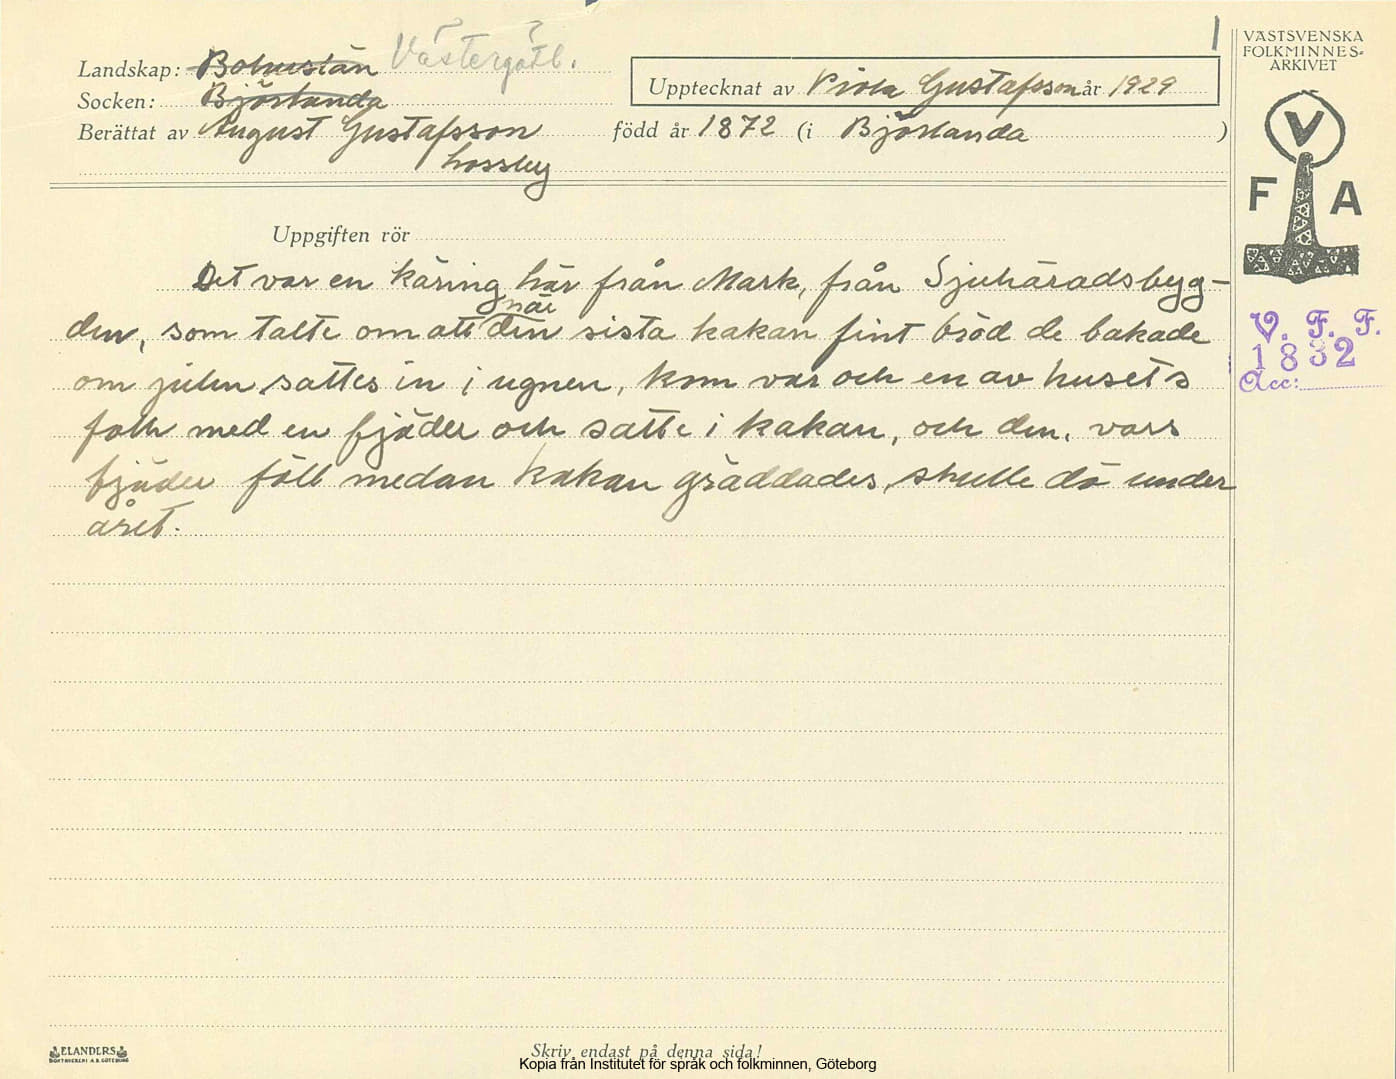 1
Landskap: Bohuslän Västergötl.
Socken: Björlanda
Upptecknat av Viola Gustafsson år 1929
Berättat av August Gustafsson född år 1872 (i Björlanda )
Lossby
Uppgiften rör
Det var en käring här från Mark, från Sjuhäradsbyg-
den, som talte om att när den sista kakan fint bröd de bakade
om julen sattes in i ugnen, kom var och en av husets
folk med en fjäder och satte i kakan, och den, vars
fjäder föll medan kakan gräddades, skulle dö under
året.
VÄSTSVENSKA
FOLKMINNES-
ARKIVET
V
F A
V. F. F.
1832
Acc:
ELANDERS
BOKTRYCKERI A.B. GÖTEBORG
Skriv endast på denna sida!
Kopia från Institutet för språk och folkminnen, Göteborg